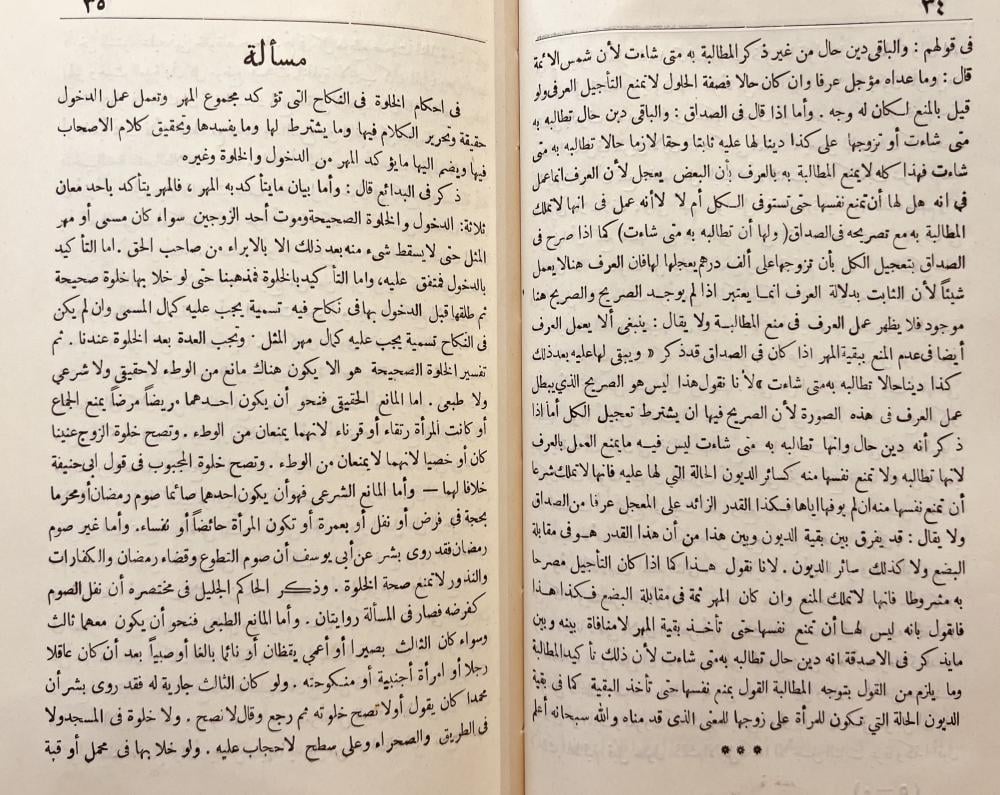 ٣٤
فى قولهم : والباقى دين حال من غير ذكر المطالبة به متى شاءت لأن شمس الائمة
قال : وما عداه مؤجل عرفا وان كان حالا فصفة الحلول لا تمنع التأجيل العرفى ولو
قيل بالمنع لكان له وجه . وأما اذا قال فى الصداق : والباقى دين حال تطالبه به
متى شاءت أو تزوجها على كذا دينا لها عليه ثابتا وحقا لازما حالا تطالبه به متى
شاءت فهذا كله لا يمنع المطالبة به بالعرف بأن البعض يعجل لأن العرف انما عمل
في انه هل لها أن تمنع نفسها حتى تستوفى الكل أم لا لا أنه عمل فى انها لا تملك
المطالبة به مع تصريحه فى الصداق ( ولها أن تطالبه به متى شاءت ) كما اذا صرح فى
الصداق بتعجيل الكل بأن تزوجها على ألف درهم يعجلها لها فان العرف هنا لا يعمل
شيئاً لأن الثابت بدلالة العرف انما يعتبر اذا لم يوجد الصريح والصريح هنا
موجود فلا يظهر عمل العرف فى منع المطالبة ولا يقال : ينبغى ألا يعمل العرف
أيضا فى عدم المنع ببقية المهر اذا كان فى الصداق قد ذكر « ويبقى لها عليه بعد ذلك
كذا دينا حالا تطالبه به متى شاءت » لأنا نقول هذا ليس هو الصريح الذى يبطل
عمل العرف فى هذه الصورة لأن الصريح فيها ان يشترط تعجيل الكل أما اذا
ذكر أنه دين حال وانها تطالبه به متى شاءت ليس فيه ما يمنع العمل بالعرف
لانها تطالبه ولا تمنع نفسها منه كسائر الديون الحالة التى لها عليه فانها لا تملك شرعا
أن تمنع نفسها منه ان لم يوفها اياها فكذا القدر الزائد على المعجل عرفا من الصداق
ولا يقال : قد يفرق بين بقية الديون وبين هذا من أن هذا القدر هو فى مقابلة
البضع ولا كذلك سائر الديون . لانا نقول هذا كما اذا كان التأجيل مصرحا
به مشروطا فانها لا تملك المنع وان كان المهر ثمة فى مقابلة البضع فكذا هذا
فالقول بانه ليس لها أن تمنع نفسها حتى تأخذ بقية المهر لا منافاة بينه وبين
ما يذكر فى الاصدقة انه دين حال تطالبه به متى شاءت لأن ذلك تأكيد المطالبة
وما يلزم من القول بتوجه المطالبة القول بمنع نفسها حتى تأخذ البقية كما فى بقية
الديون الحالة التي تكون للمرأة على زوجها للمعنى الذى قدمناه والله سبحانه أعلم
* * *
٣٥
مسألة
فى احكام الخلوة فى النكاح التى تؤكد مجموع المهر وتعمل عمل الدخول
حقيقة وتحرير الكلام فيها وما يشترط لها وما يفسدها وتحقيق كلام الاصحاب
فيها ويضم اليها ما يؤكد المهر من الدخول والخلوة وغيره
ذكر فى البدائع قال : وأما بيان ما يتأكد به المهر ، فالمهر يتأكد باحد معان
ثلاثة: الدخول والخلوة الصحيحة وموت أحد الزوجين سواء كان مسمى أو مهر
المثل حتى لا يسقط شىء منه بعد ذلك الا بالابراء من صاحب الحق . اما التأكيد
بالدخول فمتفق عليه، واما التأكيد بالخلوة فمذهبنا حتى لو خلا بها خلوة صحيحة
ثم طلقها قبل الدخول بها فى نكاح فيه تسمية يجب عليه كمال المسمى وان لم يكن
فى النكاح تسمية يجب عليه كمال مهر المثل . وتجب العدة بعد الخلوة عندنا . ثم
تفسير الخلوة الصحيحة هو الا يكون هناك مانع من الوطء لا حقيقي ولا شرعي
ولا طبعى . اما المانع الحقيقى فنحو أن يكون احدهما مريضاً مرضاً يمنع الجماع
أو كانت المرأة رتقاء أو قرناء لانهما يمنعان من الوطء . وتصح خلوة الزوج عنينا
كان أو خصيا لانهما لا يمنعان من الوطء . وتصح خلوة المجبوب فى قول ابى حنيفة
خلافا لهما — وأما المانع الشرعى فهو أن يكون احدهما صائما صوم رمضان أو محرما
بحجة فى فرض أو نفل أو بعمرة أو تكون المرأة حائضاً أو نفساء. وأما غير صوم
رمضان فقد روى بشر عن أبى يوسف أن صوم التطوع وقضاء رمضان والكفارات
والنذور لا تمنع صحة الخلوة . وذكر الحاكم الجليل فى مختصره أن نفل الصوم
كفرضه فصار فى المسألة روايتان . وأما المانع الطبعى فنحو أن يكون معهما ثالث
وسواء كان الثالث بصيرا أو أعمي يقظان أو نائما بالغا أو صبياً بعد أن كان عاقلا
رجلا أو امرأة أجنبية أو منكوحته . ولو كان الثالث جارية له فقد روى بشر أن
محمدا كان يقول أولا تصح خلوته ثم رجع وقال لا تصح . ولا خلوة فى المسجد ولا
فى الطريق والصحراء وعلى سطح لا حجاب عليه . ولو خلا بها فى محمل أو قبة